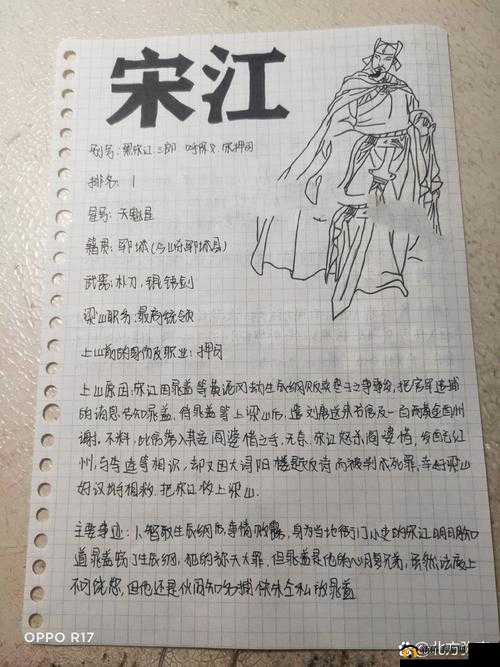 宋江
别名:黑宋江 三郎 呼保义 宋押司
排名: 1
星号:天魁星
籍贯:郓城(今山东郓城县)
武器:朴刀,锟铻剑
梁山职务:最高统领
上山前的身份及职业:押司
上山原因:宋江因晁盖等黄泥冈劫生辰纲败案,把官军追捕
的消息告知晁盖,得晁盖等上梁山后,遣刘唐送来书信及一百两黄金酬
谢,不料,此信落入其妾阎婆惜之手,无奈,宋江怒杀阎婆惜,发配江
州,与李逵等相识,却又因大浔阳楼题反诗而被判死罪,幸好梁山
好汉将相救,把宋江救上梁山.
主要事迹:1.智取生辰纲后,事情败露,身为当地衙门小吏的宋江明明知
道晁盖劫了生辰纲,犯的弥天大罪,但晁盖是他的心腹兄弟,虽然法度上
不可饶恕,但他还是
OPPO R17
北方